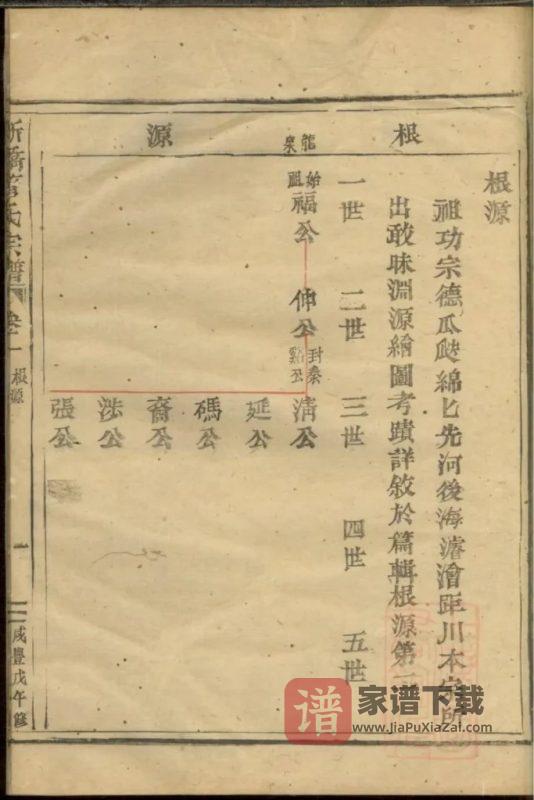 根源
根源
祖功宗德瓜瓞綿匕先河後海濬澮距川本宗所
出敢昧淵源繪圖考蹟詳敘於篇輯根源第
一世
二世
三世
四世
五世
龍泉
始祖
福公
伸公
封秦谿公
清公
延公
碼公
裔公
涉公
張公
橋管氏宗譜
卷一
根源
一
咸豐戊午修
谱
家谱下载
www.JiaPuXiaZai.com